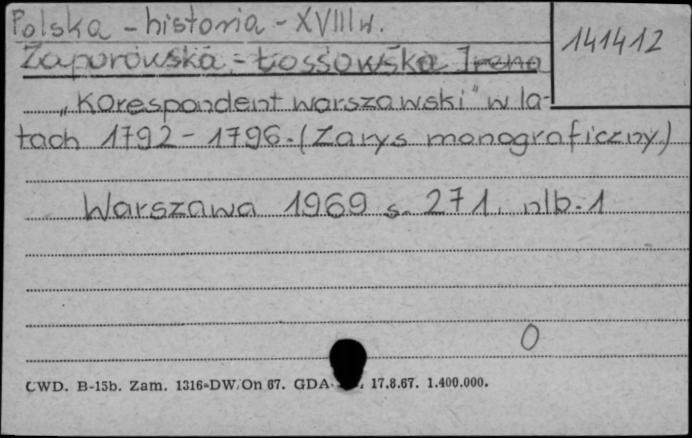 Polska - historia - XVIII w.
141412
Zaporowska - Łossowska Irena
„Korespondent warszawski" w la-
tach 1792 - 1796. (Zarys monograficzny)
Warszawa 1969 s. 271. nlb. 1
0
CWD. B-15b. Zam. 1316-DW/On 67. GDA 17.8.67. 1.400.000.